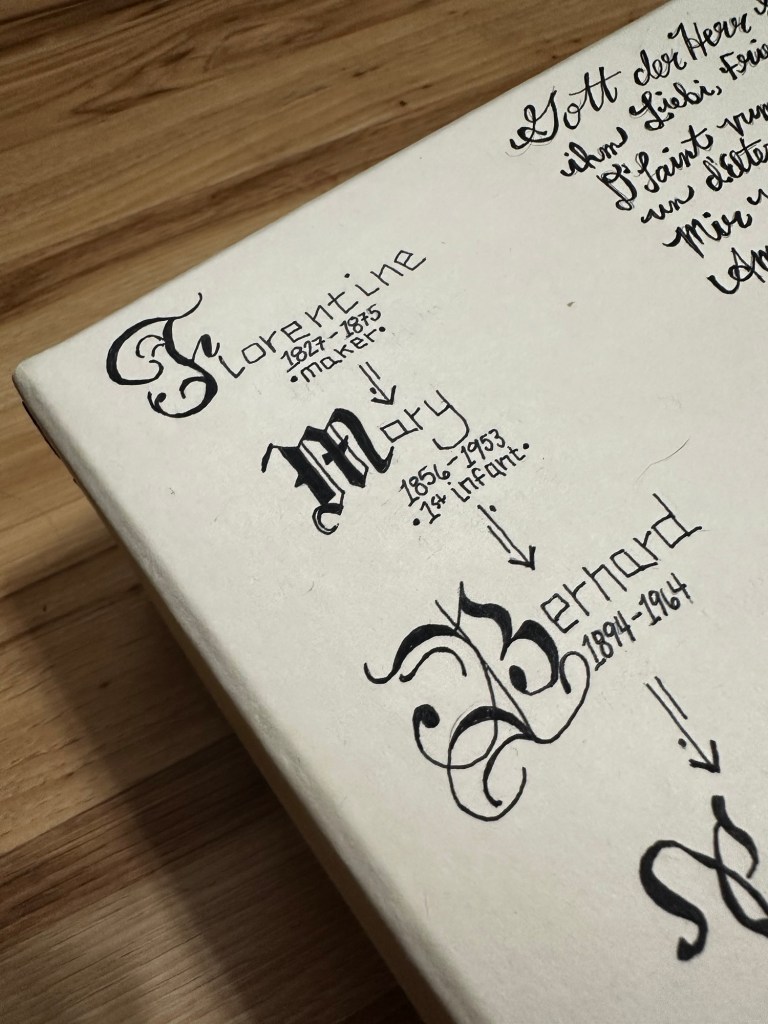 Gott der Herr
ihm Liebi, Frie
D'Saint
un d'Elte
Mir
Am
Florentine
1827-1875
•maker•
Mary
1856-1953
•1st infant•
Berhard
1894-1964